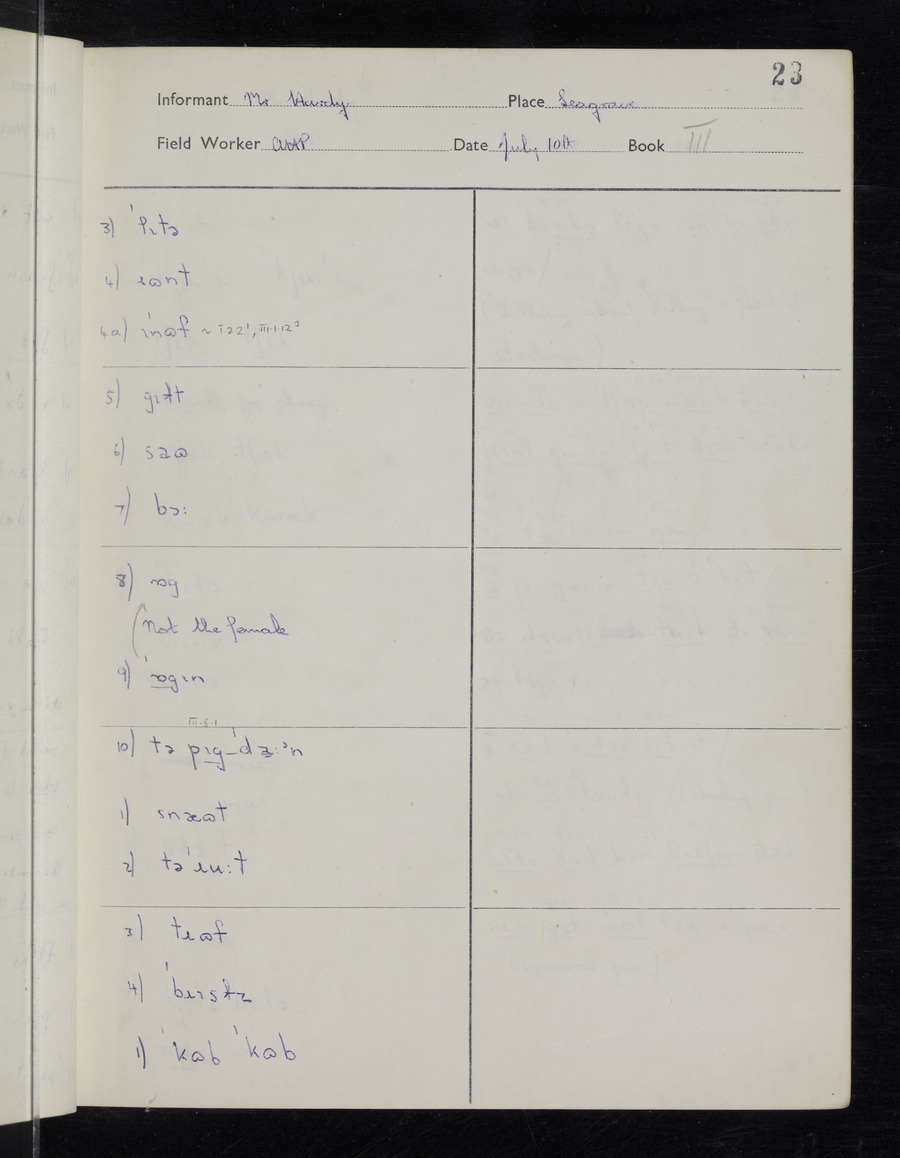 23
Informant Mr Hurdy Place Seagrave
Field Worker Date July 10th Book III
3) ˈlɪtə
4) ɹɷnt
4a) ˈɪnɷf ~ I 2 2¹, III.1.12³
5) gɪɫt
6) saɷ
7) bɔ:
8) ɒg
Not the female
9) ˈɒgɪn
III.8.1
1) snæɷt
2) təˈɹu:t
3) tɹɷf
4) ˈbɹɪsɫz
1) ˈkɷb ˈkɷb